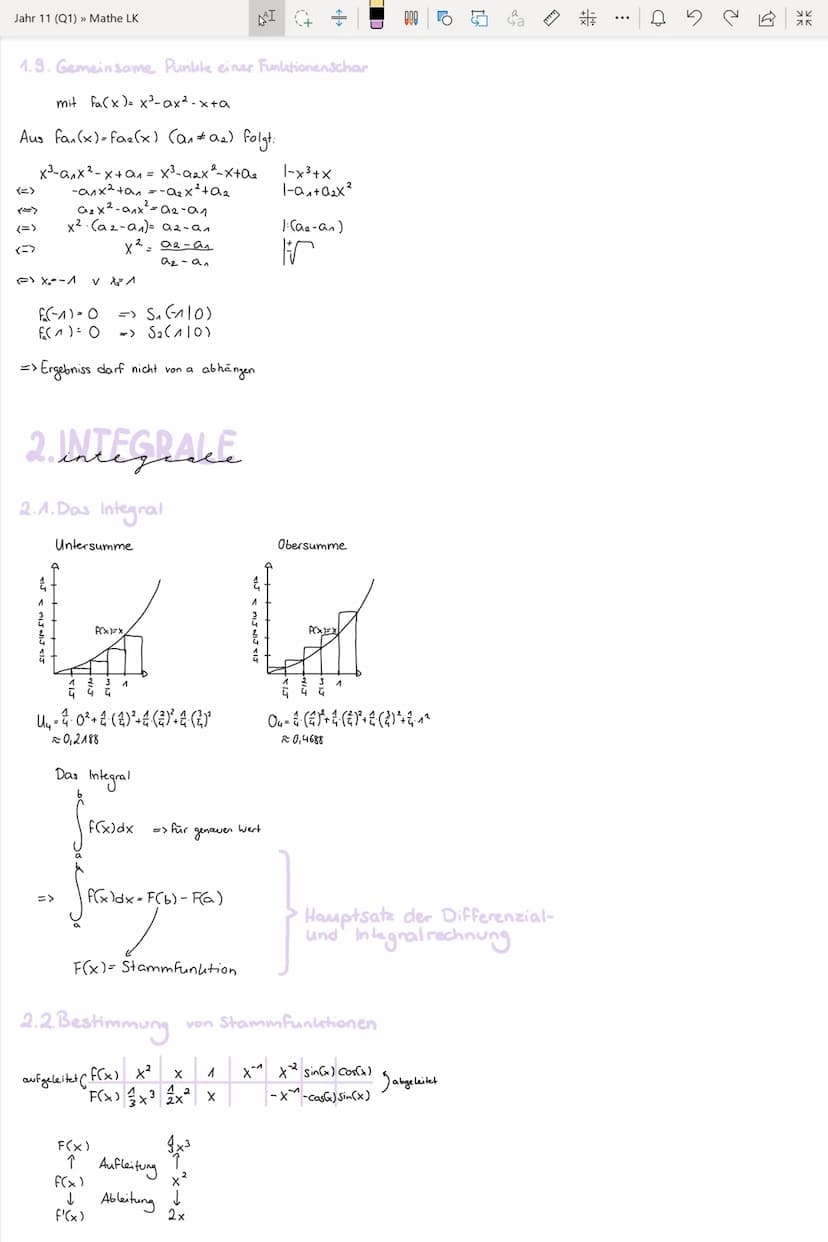 Jahr 11 (Q1) » Mathe LK
1.9. Gemeinsame Punkte einer Funktionenschar
mit fa(x)= x³-ax²-x+a
Aus fa₁(x)=fa₂(x) (a₁≠a₂) folgt:
x³-a₁x²-x+a₁ = x³-a₂x²-x+a₂ |-x³+x
<=> -a₁x²+a₁ = -a₂x²+a₂ |-a₁+a₂x²
<=> a₂x²-a₁x²=a₂-a₁
<=> x²·(a₂-a₁)= a₂-a₁ |:(a₂-a₁)
<=> x² = (a₂-a₁)/(a₂-a₁) |±√
<=> x₁=-1 ∨ x₂=1
fₐ(-1)=0 => S₁(-1|0)
fₐ(1)=0 => S₂(1|0)
=> Ergebniss darf nicht von a abhängen
2. INTEGRALE
integrale
2.1. Das Integral
Untersumme Obersumme
f(x)=x f(x)=x
¼ 1 ¾ 2/4 ¼ ¼ 1 ¾ 2/4 ¼
¼ 2/4 ¾ 1 ¼ 2/4 ¾ 1
U₄=¼·0²+¼·(¼)²+¼·(2/4)²+¼·(¾)² O₄=¼·(¼)²+¼·(2/4)²+¼·(¾)²+¼·1²
≈0,2188 ≈0,4688
Das Integral
b
∫ f(x)dx => für genauen Wert
a
b
=> ∫ f(x)dx = F(b) - F(a)
a
Hauptsatz der Differenzial-
und Integralrechnung
F(x)= Stammfunktion
2.2. Bestimmung von Stammfunktionen
aufgeleitet f(x) x² x 1 x⁻¹ x⁻² sin(x) cos(x) abgeleitet
F(x) ⅓x³ ½x² x -x⁻¹ -cos(x) sin(x)
F(x) ⅓x³
↑ Aufleitung ↑
f(x) x²
↓ Ableitung ↓
f'(x) 2x